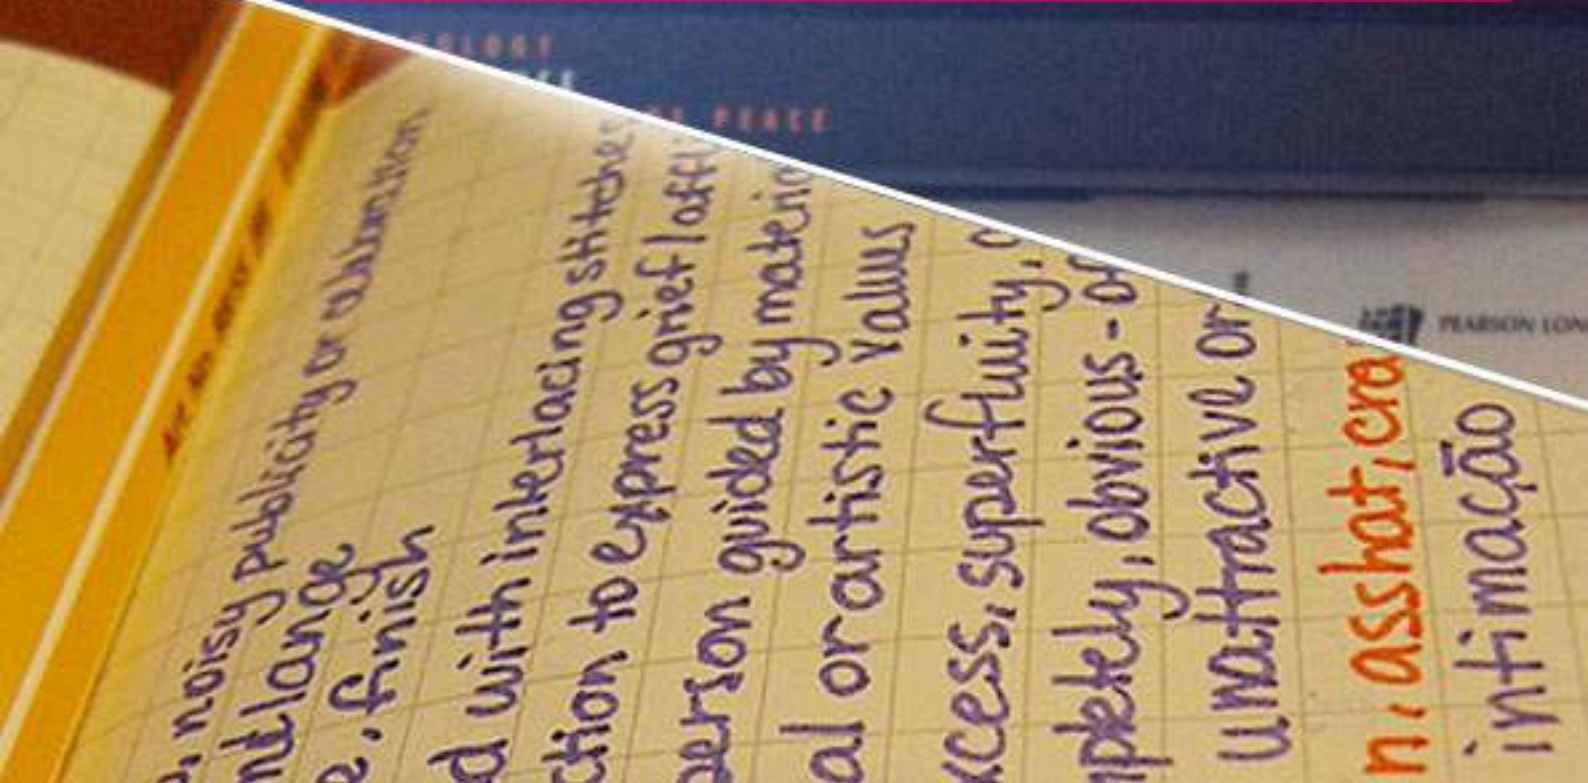 OLOGY
PEACE
PEARSON LON
noisy publicity or attention
nt lange
e, finish
d with interlacing stitches
ction to express grief/affli
person guided by materia
al or artistic values
xcess, superfluity,
mpletely, obvious - of
unattractive or
n, asshat, cra
intimação